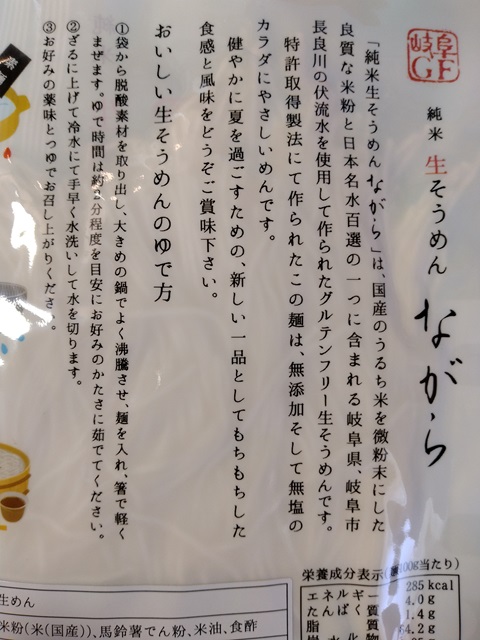 岐阜
GF
純米 生そうめん ながら
「純米生そうめんながら」は、国産のうるち米を微粉末にした
良質な米粉と日本名水百選の一つに含まれる岐阜県、岐阜市
長良川の伏流水を使用して作られたグルテンフリー生そうめんです。
特許取得製法にて作られたこの麺は、無添加そして無塩の
カラダにやさしいめんです。
健やかに夏を過ごすための、新しい一品としてもちもちした
食感と風味をどうぞご賞味下さい。
おいしい生そうめんのゆで方
①袋から脱酸素材を取り出し、大きめの鍋でよく沸騰させ、麺を入れ、箸で軽く
まぜます。ゆで時間は約2分程度を目安にお好みのかたさに茹でてください。
②ざるに上げて冷水にて手早く水洗いして水を切ります。
③お好みの薬味とつゆでお召し上がりください。
栄養成分表示(100g当たり)
エネルギー 285 kcal
たんぱく質 4.0g
脂質 1.4g
64.2g
生めん
米粉(米(国産))、馬鈴薯でん粉、米油、食酢